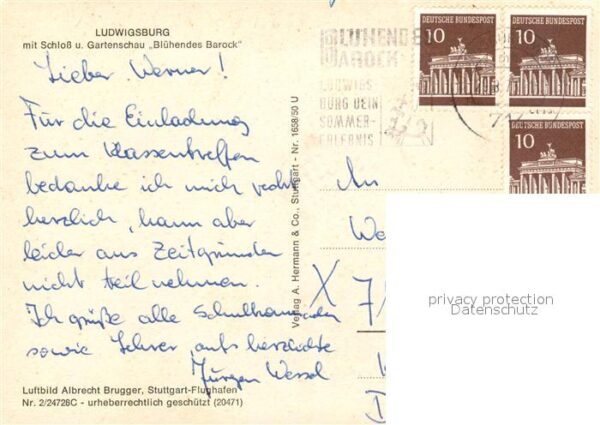 LUDWIGSBURG
mit Schloß u. Gartenschau „Blühendes Barock"
Lieber Werner!
Für die Einladung
zum Klassentreffen
bedanke ich mich recht
herzlich, kann aber
leider aus Zeitgründen
nicht teilnehmen.
Ich grüße alle Schulkameraden
sowie Lehrer aufs herzlichste
Jürgen Wessel
Luftbild Albrecht Brugger, Stuttgart-Flughafen
Nr. 2/24726C - urheberrechtlich geschützt (20471)
Verlag A. Hermann & Co., Stuttgart - Nr. 1638/50 U
BLÜHENDES
BAROCK
LUDWIGS
BURG DEIN
SOMMER-
ERLEBNIS
DEUTSCHE BUNDESPOST
10
DEUTSCHE BUNDESPOST
10
DEUTSCHE BUNDESPOST
10
An
We
X 7
privacy protection
Datenschutz